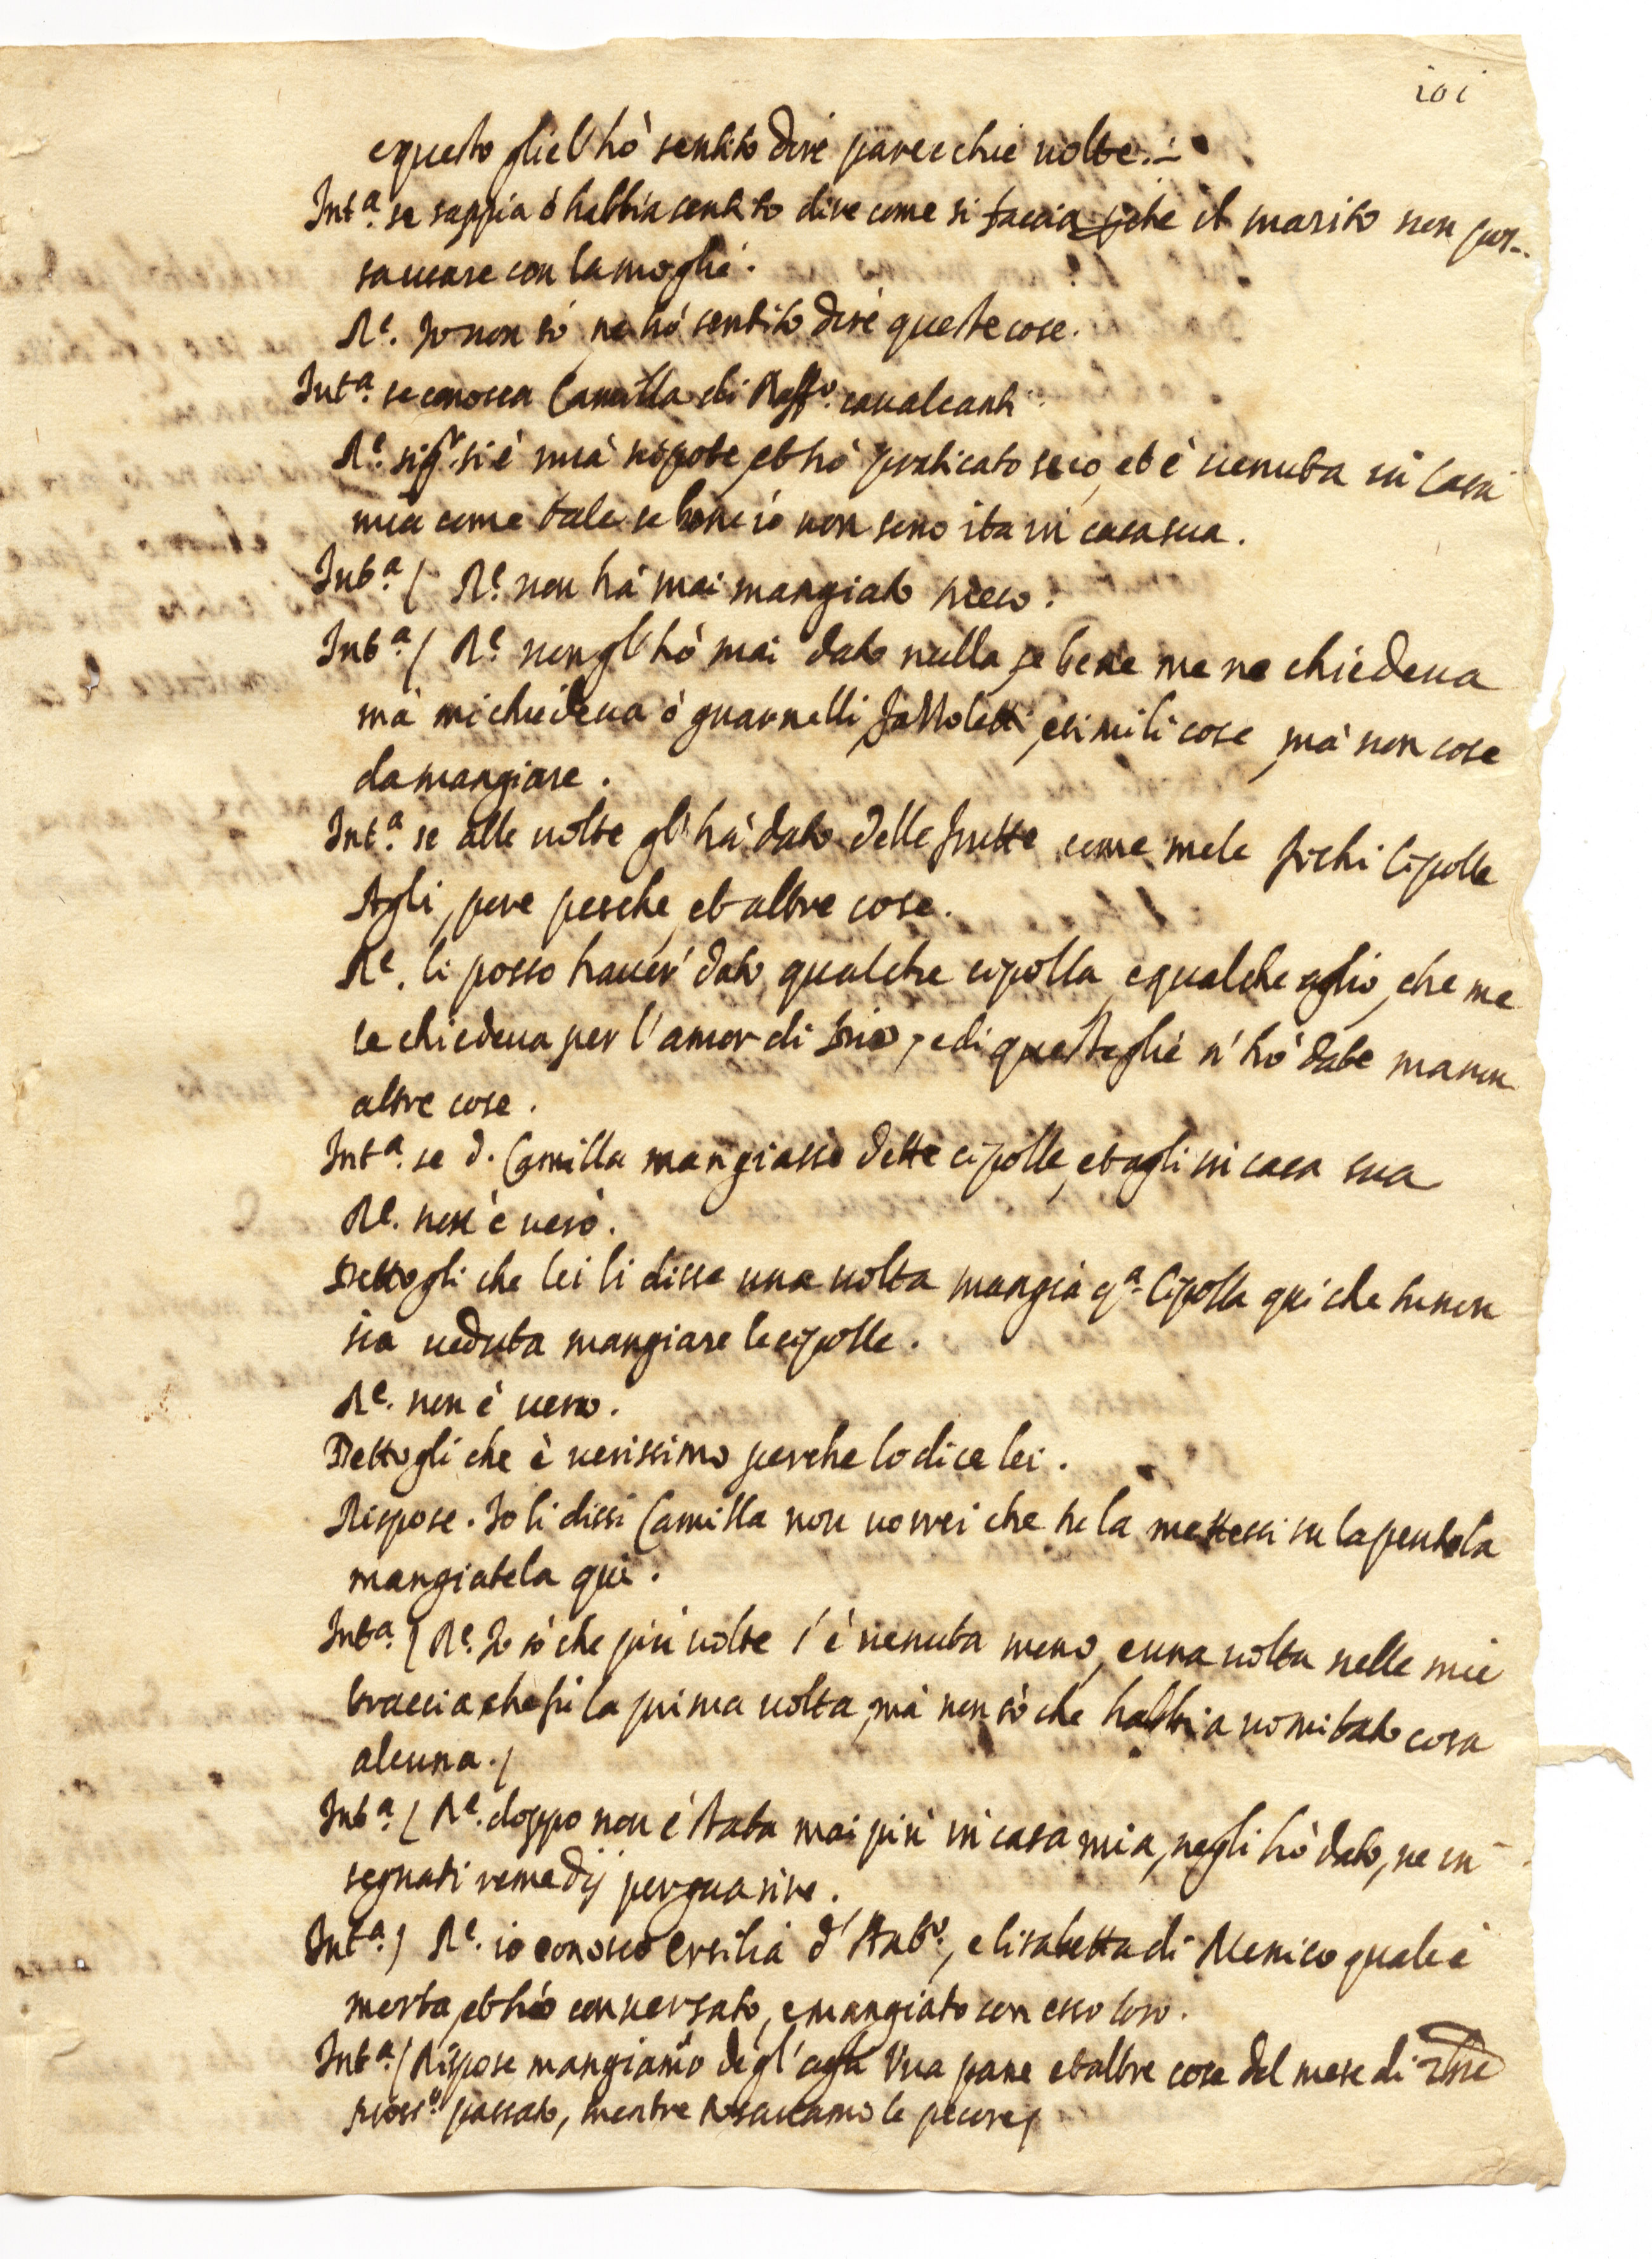 101
e questo gliel'hò sentito dire parecchie volte.
Int.a se sappia ò habbia sentito dire come si faccia che il marito non pos-
sa usare con la moglie.
R.e Io non sò ne hò sentito dire queste cose.
Int.a se conosca Camilla di Raff.o cavalcanti
R.e sig.r si è mia nipote, et hò praticato seco, et è venuta in casa
mia come tale se bene io non sono ita in casa sua.
Int.a / R.e non hà mai mangiato meco.
Int.a / R.e non gl'hò mai dato nulla se bene me ne chiedeva
mà mi chiedeva ò guarnelli fazzoletti, e simili cose, mà non cose
da mangiare.
Int.a se alle volte gl'hà dato delle frutte come mele fichi Cipolle
Agli, pere pesche, et altre cose.
R.e li posso haver' dato qualche cipolla, e qualche aglio, che me
le chiedeva per l'amor di Dio, e di queste glie n'hò date ma non
altre cose.
Int.a se d. Camilla mangiasse dette cipolle, et agli in casa sua
R.e non è vero.
Dettogli che lei li disse una volta mangia q.a Cipolla quì che tu non
sia veduta mangiare le cipolle.
R.e non è vero.
Dettogli che è verissimo perche lo dice lei.
Rispose. Io li dissi Camilla non vorrei che tu la mettessi su la pentola
mangiatela quì.
Int.a / R.e Io sò che più volte s'è venuta meno, e una volta nelle mie
braccia che fù la prima volta, mà non sò che habbia vomitato cosa
alcuna./
Int.a / R.e doppo non è stata mai più in casa mia, ne gli hò dato, ne in-
segnati remedij per guarire.
Int.a / R.e io conosco Ersilia d'Ant.o, e lisabetta di Menico quale è
morta, et hò conversato, e mangiato con esso loro.
Int.a / Rispose mangiamo degl'agli Uva pane et altre cose del mese di
pross.o passato, mentre tosavamo le pecore/